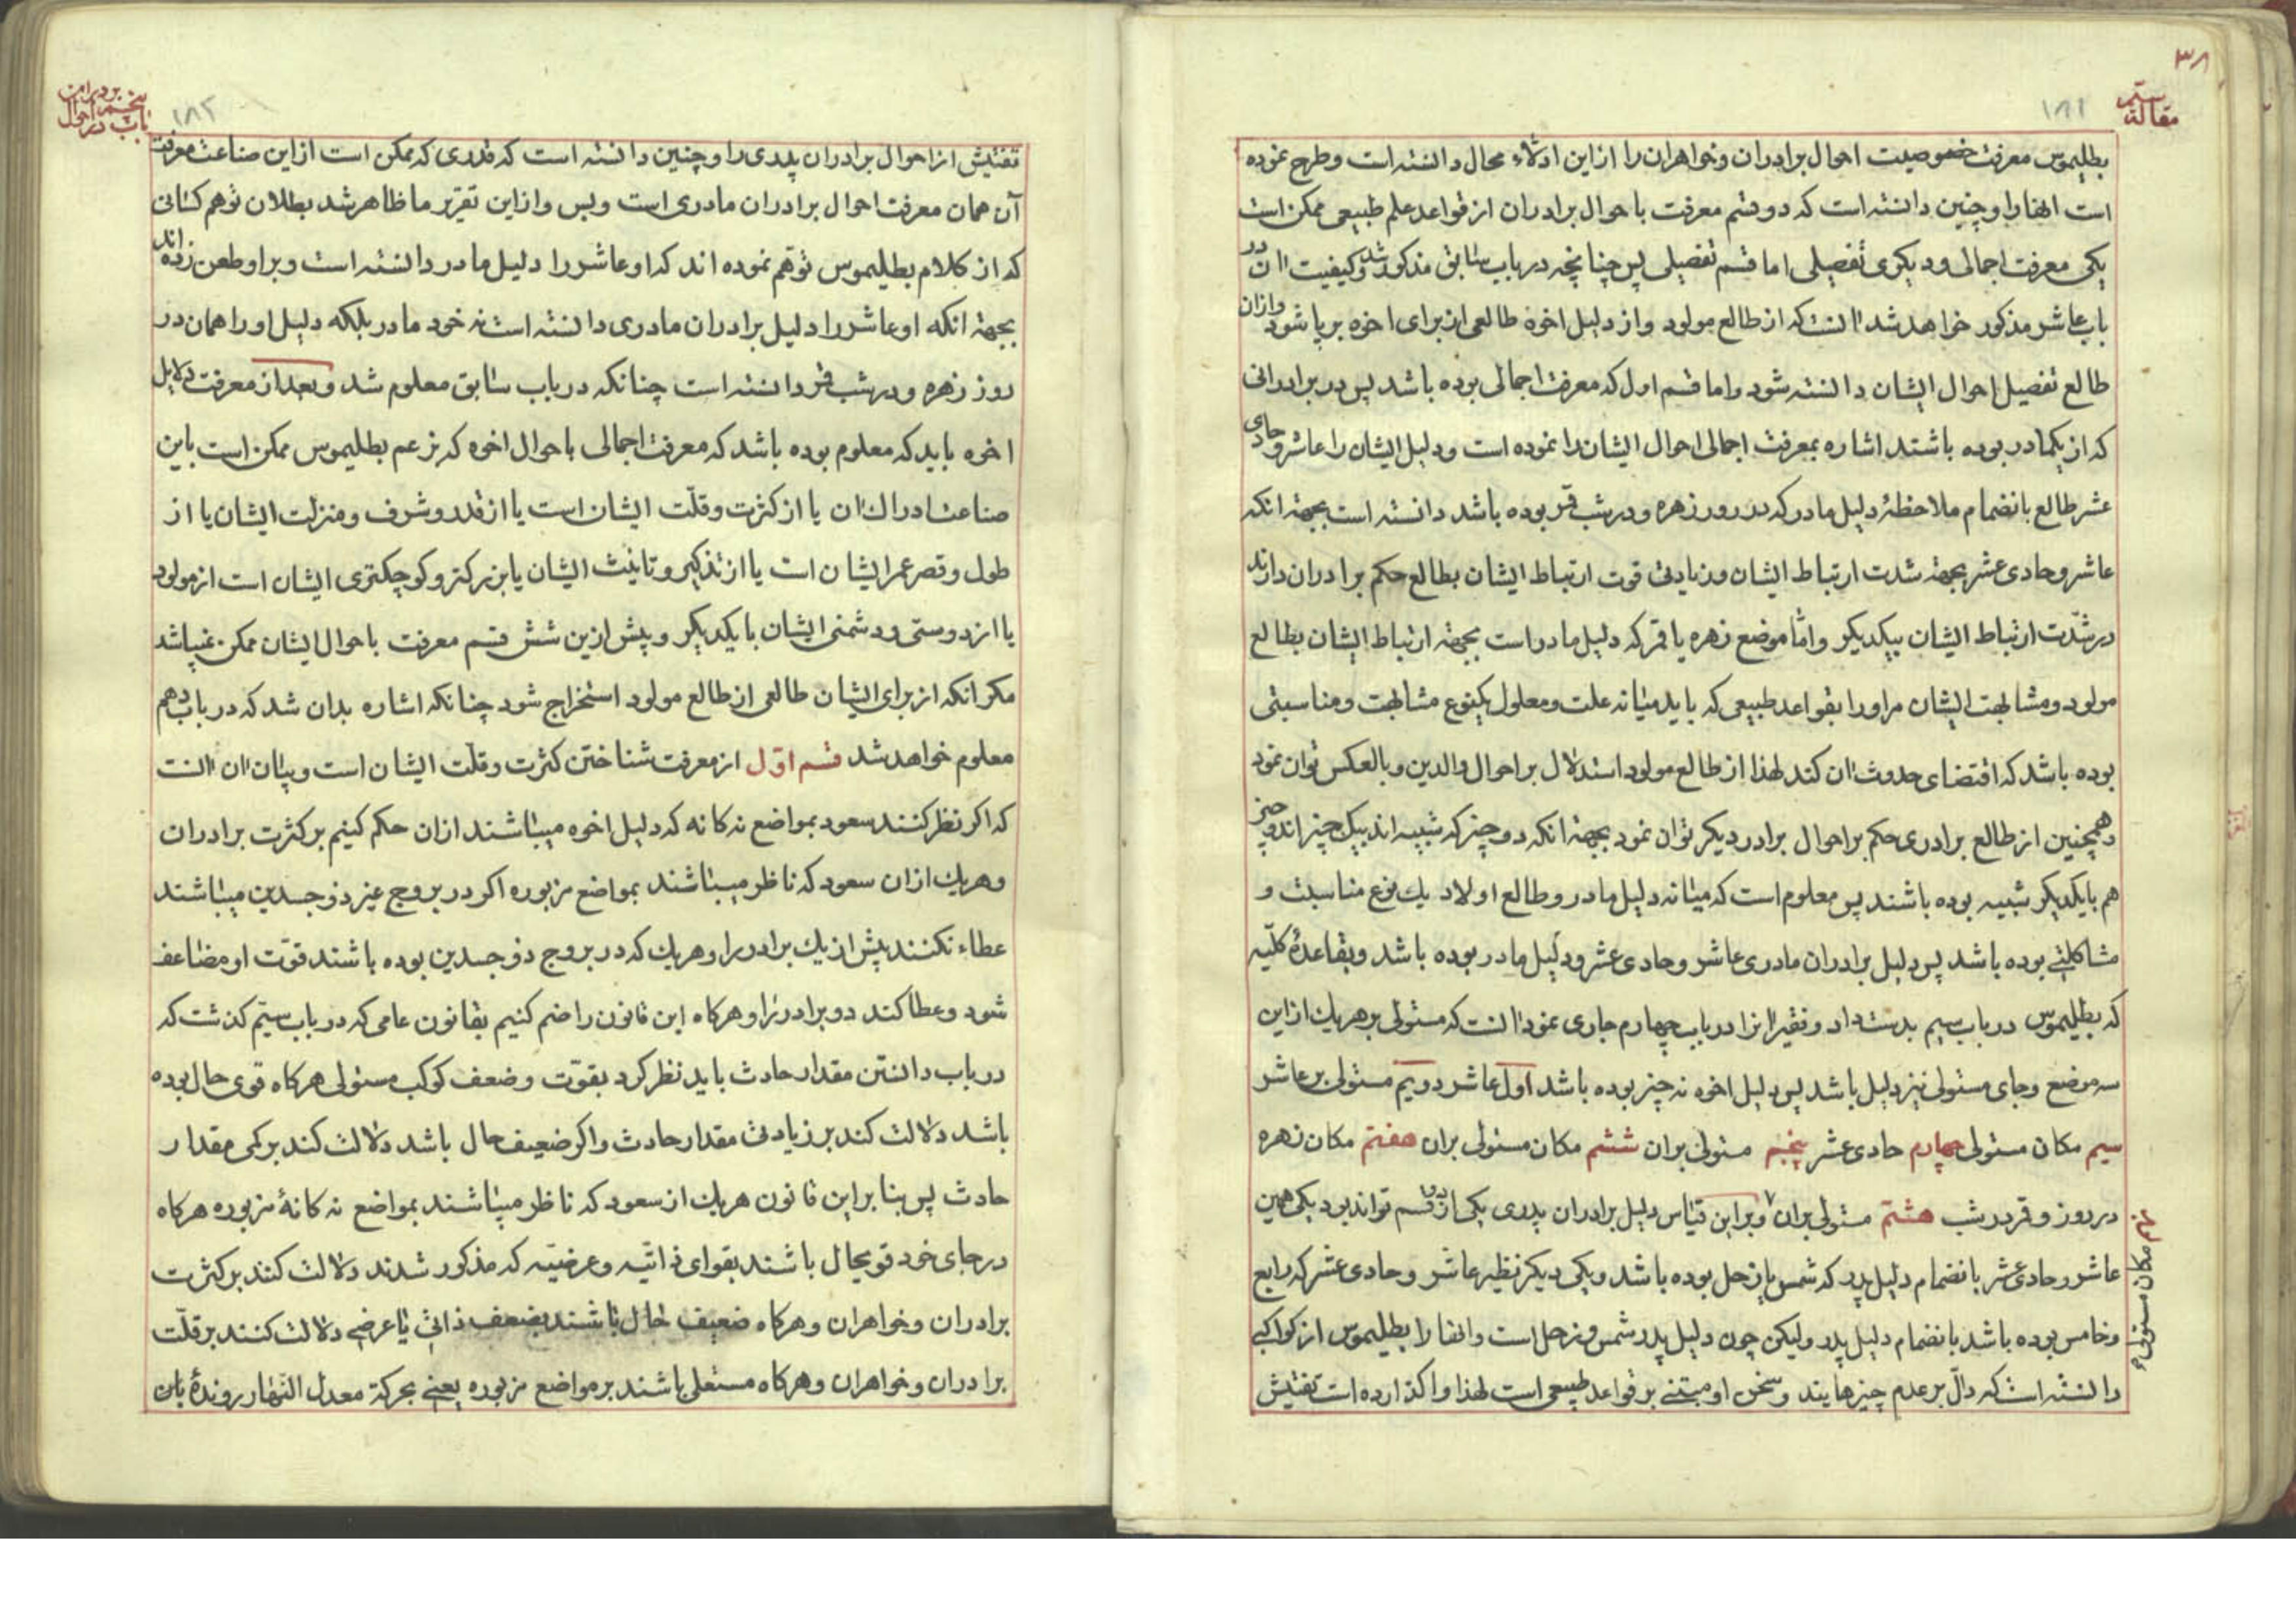 ۳۸
مقالة سیم
۱۸۱
بطلیموس معرفت خصوصیت احوال برادران و خواهران را از این ادلّاء محال دانسته است و طرح نموده
است انها را و چنین دانسته است که دو قسم معرفت باحوال برادران از قواعد علم طبیعی ممکن است
یکی معرفت اجمالی و دیکری تفصیلی اما قسم تفصیلی پس چنانچه در باب سابق مذکور شد و کیفیت ان در
باب عاشر مذکور خواهد شد انست که از طالع مولود و از دلیل اخوه طالعی از برای اخوه برپا شود و از ان
طالع تفصیل احوال ایشان دانسته شود و اما قسم اول که معرفت اجمالی بوده باشد پس در برادرانی
که از یکمادر بوده باشند اشاره بمعرفت اجمالی احوال ایشان را نموده است و دلیل ایشان را عاشر و حادی
عشر طالع بانضمام ملاحظهٔ دلیل مادر که در روز زهره و در شب قمر بوده باشد دانسته است بجهة انکه
عاشر و حادی عشر بجهة شدت ارتباط ایشان و زیادتی قوت ارتباط ایشان بطالع حکم برادران دارند
در شدّت ارتباط ایشان بیکدیکر و امّا موضع زهره یا قمر که دلیل مادر است بجهة ارتباط ایشان بطالع
مولود و مشابهت ایشان مر او را بقواعد طبیعی که باید میانه علت و معلول یکنوع مشابهت و مناسبتی
بوده باشد که اقتضای حدوث ان کند لهذا از طالع مولود استدلال بر احوال والدین و بالعکس توان نمود
و همچنین از طالع برادری حکم بر احوال برادر دیکر توان نمود بجهة انکه دو چیز که شبیه اند بیک چیز
هم بایکدیکر شبیه بوده باشند پس معلوم است که میانه دلیل مادر و طالع اولاد یك نوع مناسبت و
مشاکلتی بوده باشد پس دلیل برادران مادری عاشر و حادی عشر و دلیل مادر بوده باشد و بقاعدهٔ کلّیه
که بطلیموس در باب سیم بدست داد و نظیر انرا در باب چهارم جاری نمود انست که مستولی بر هر یك از این
سه موضع و جای مستولی نیز دلیل باشد پس دلیل اخوه نه چیز بوده باشد اول عاشر دویم مستولی بر عاشر
سیم مکان مستولی چهارم حادی عشر پنجم مستولی بران ششم مکان مستولی بران هفتم مکان زهره
در روز و قمر در شب هشتم مستولی بران و بر این قیاس دلیل برادران پدری یکی از دو قسم تواند بود یکی همین
نهم مکان مستولی
عاشر و حادی عشر بانضمام دلیل پدر که شمس یا زحل بوده باشد و یکی دیکر نظیر عاشر و حادی عشر که رابع
و خامس بوده باشد بانضمام دلیل پدر ولیکن چون دلیل پدر شمس و زحل است و انها را بطلیموس از کواکبی
دانسته است که دالّ بر عدم چیزهایند و سخن او مبتنی بر قواعد طبیعی است لهذا واکذارده است تفتیش
باب پنجم در احوال برادران
۱۸۲
تفتیش از احوال برادران پدری را و چنین دانسته است که قدری که ممکن است از این صناعت معرفت
آن همان معرفت احوال برادران مادری است و بس و از این تقریر ما ظاهر شد بطلان توهم کسانی
که از کلام بطلیموس توهّم نموده اند که او عاشر را دلیل مادر دانسته است و بر او طعن زده اند
بجهة انکه او عاشر را دلیل برادران مادری دانسته است نه خود مادر بلکه دلیل او را همان در
روز زهره و در شب قمر دانسته است چنانکه در باب سابق معلوم شد و بعد از معرفت دلایل
اخوه باید که معلوم بوده باشد که معرفت اجمالی باحوال اخوه که بزعم بطلیموس ممکن است باین
صناعت ادراك ان یا از کثرت و قلّت ایشان است یا از قدر و شرف و منزلت ایشان یا از
طول و قصر عمر ایشان است یا از تذکیر و تانیث ایشان یا بزرکتر و کوچکتری ایشان است از مولود
یا از دوستی و دشمنی ایشان بایکدیکر و پیش از ین شش قسم معرفت باحوال ایشان ممکن نمیباشد
مکر انکه از برای ایشان طالعی از طالع مولود استخراج شود چنانکه اشاره بدان شد که در باب دهم
معلوم خواهد شد قسم اوّل از معرفت شناختن کثرت و قلّت ایشان است و بیان ان انست
که اکر نظر کنند سعود بمواضع نه کانه که دلیل اخوه میباشند از ان حکم کنیم بر کثرت برادران
و هر یك از ان سعود که ناظر میباشند بمواضع مزبوره اکر در بروج غیر ذوجسدین میباشند
عطاء نکنند بیش از یك برادر را و هر یك که در بروج ذوجسدین بوده باشند قوّت او مضاعف
شود و عطا کند دو برادر را و هر کاه این قانون را ضم کنیم بقانون عامی که در باب سیّم کذشت که
در باب دانستن مقدار حادث باید نظر کرد بقوّت و ضعف کوکب مستولی هر کاه قوی حال بوده
باشد دلالت کند بر زیادتی مقدار حادث و اکر ضعیف حال باشد دلالت کند بر کمی مقدار
حادث پس بنا بر این قانون هر یك از سعود که ناظر میباشند بمواضع نه کانهٔ مزبوره هر کاه
در جای خود قویحال باشند بقوای ذاتیّه و عرضیّه که مذکور شدند دلالت کنند بر کثرت
برادران و خواهران و هر کاه ضعیف حال باشند بضعف ذاتی یا عرضی دلالت کنند بر قلّت
برادران و خواهران و هر کاه مستعلی باشند بر مواضع مزبوره یعنی بحرکة معدل النّهار روندهٔ باین